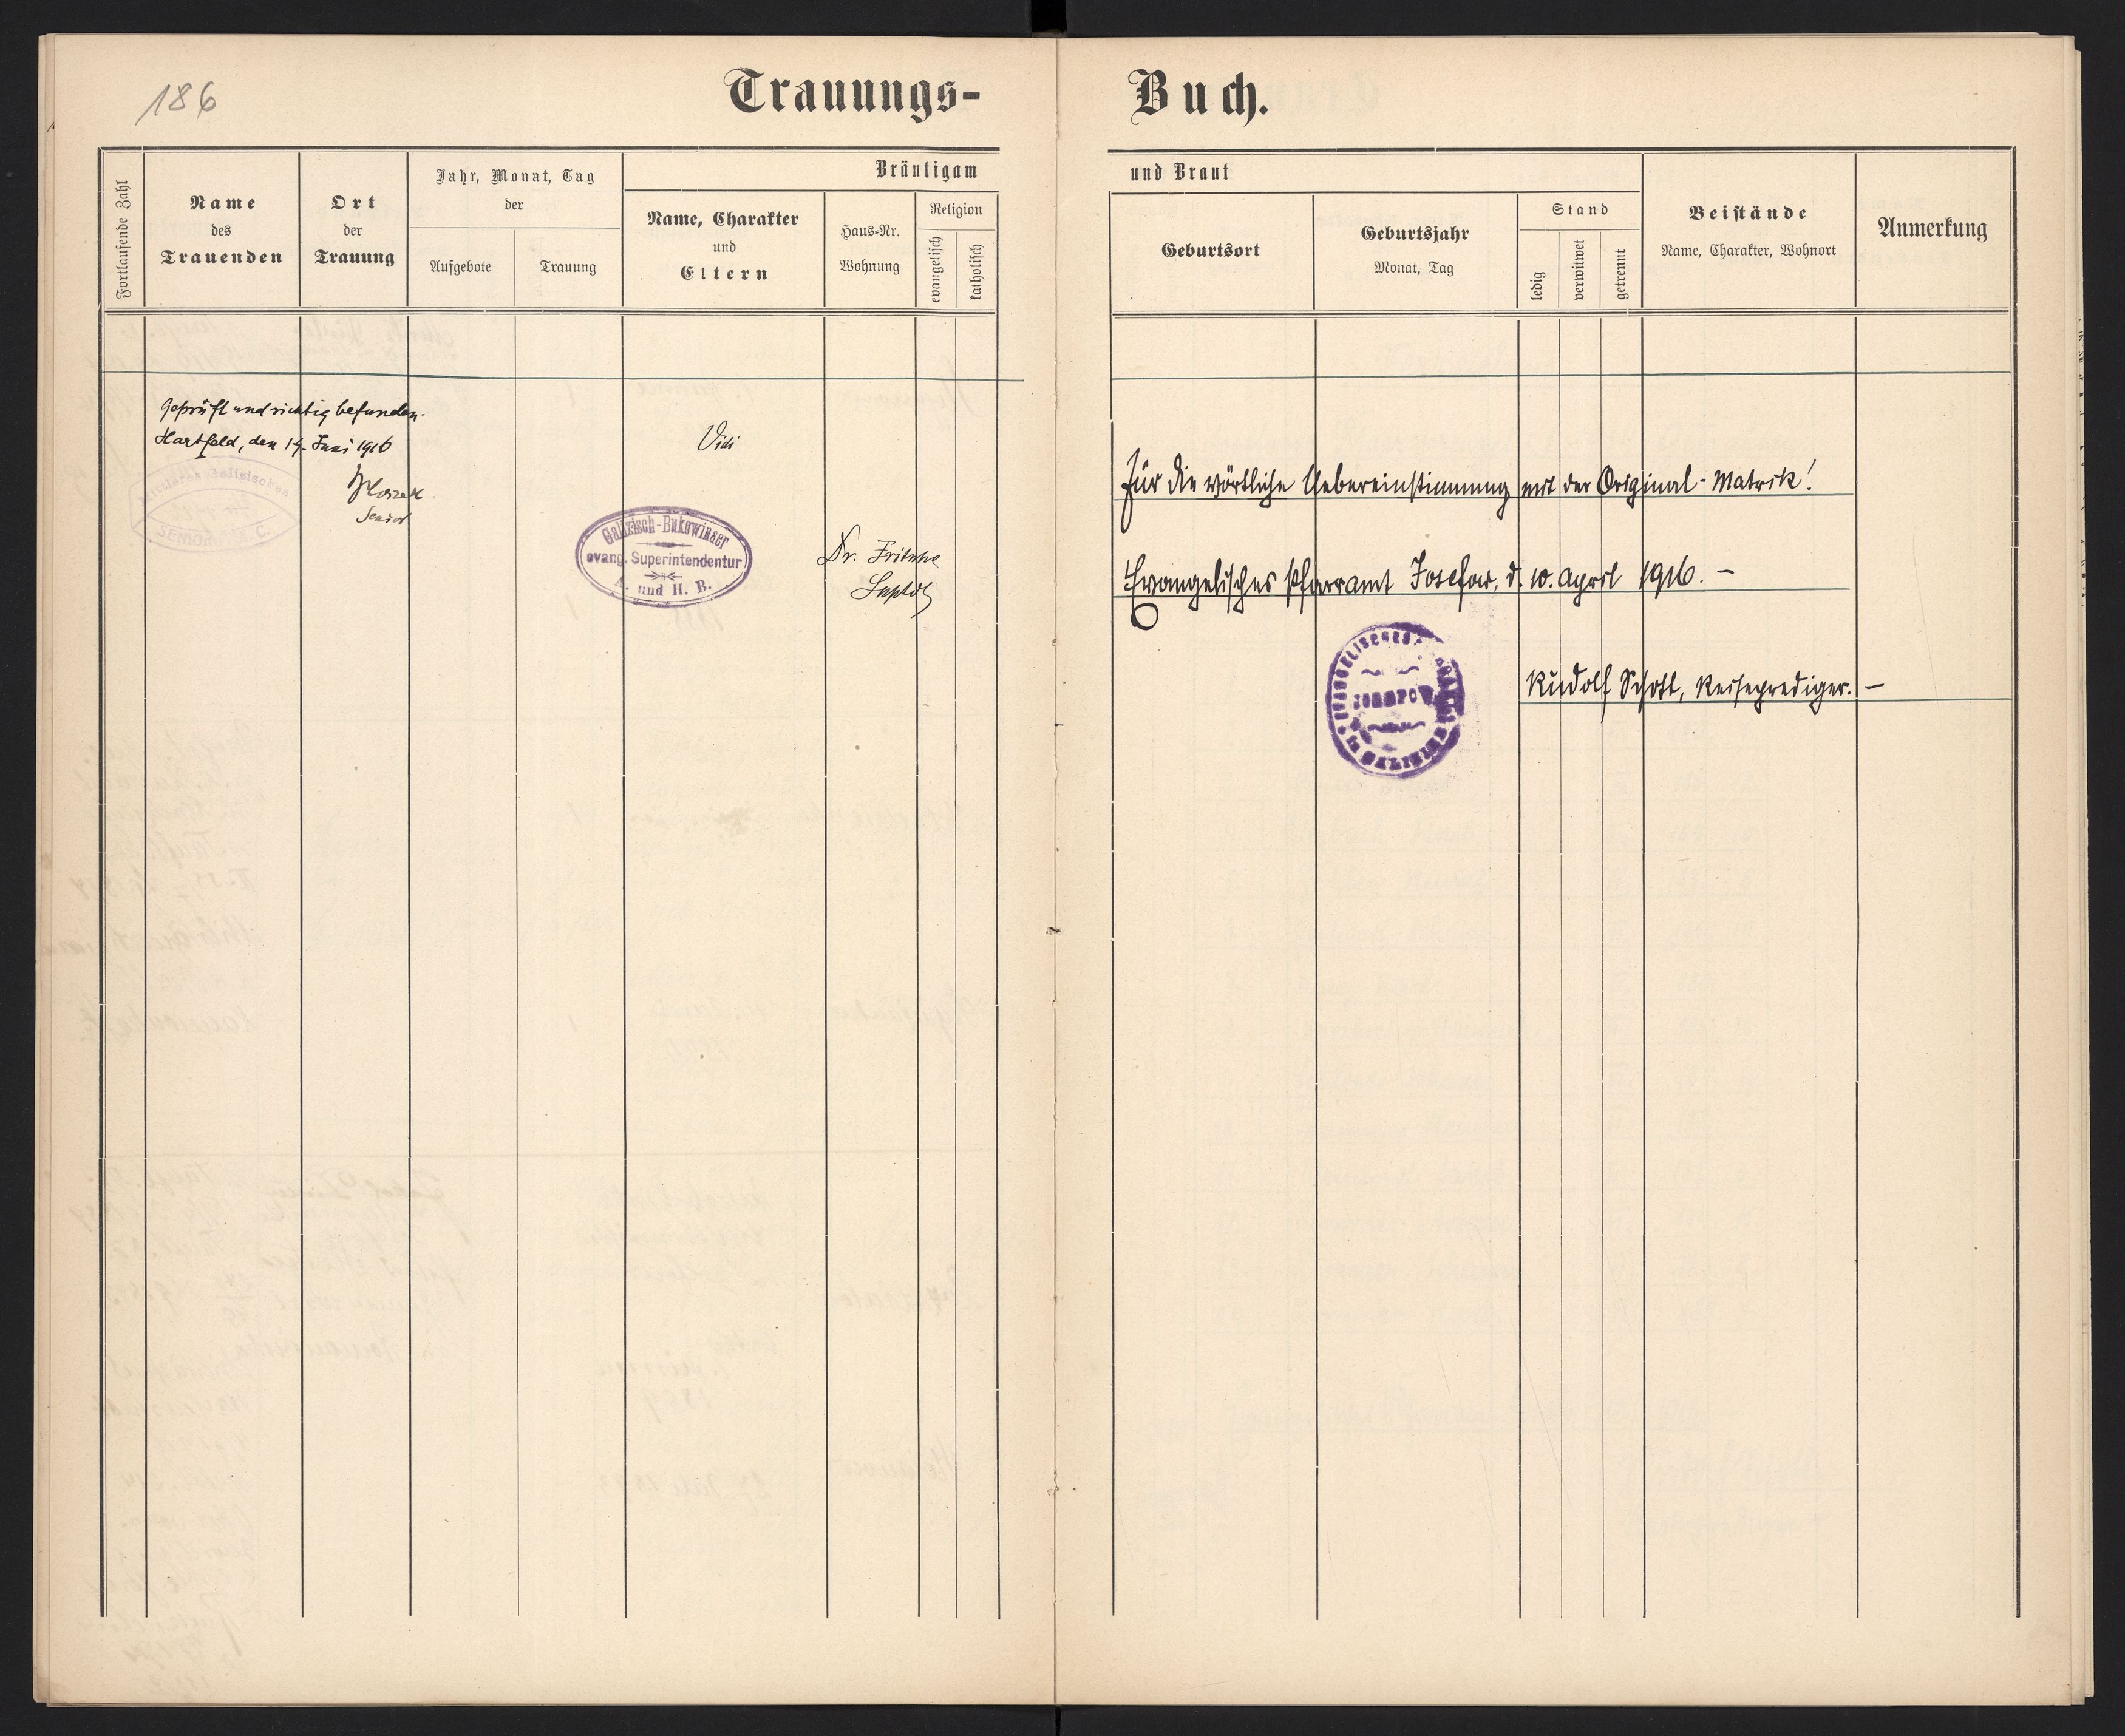 186
Trauungs-
Buch.
Fortlaufende Zahl
Name
des
Trauenden
Ort
der
Trauung
Jahr, Monat, Tag
der
Aufgebote
Trauung
Bräutigam
Name, Charakter
und
Eltern
Haus-Nr.
Wohnung
Religion
evangelisch
katholisch
und Braut
Geburtsort
Geburtsjahr
Monat, Tag
Stand
ledig
verwitwet
getrennt
Beistände
Name, Charakter, Wohnort
Anmerkung
Geprüft und richtig befunden.
Hartfeld, den 14. Juni 1916
Senior
Galizisches
SENIOR C.
Vidi
Galizisch-Bukowinaer
evang. Superintendentur
A. und H. B.
Dr. Fritsche
Suptdt
Für die wörtliche Uebereinstimmung mit der Original-Matrik!
Evangelisches Pfarramt Josefow, d. 10. April 1916. –
EVANGELISCHES
in GALIZIEN
Rudolf Schott, Reiseprediger. –